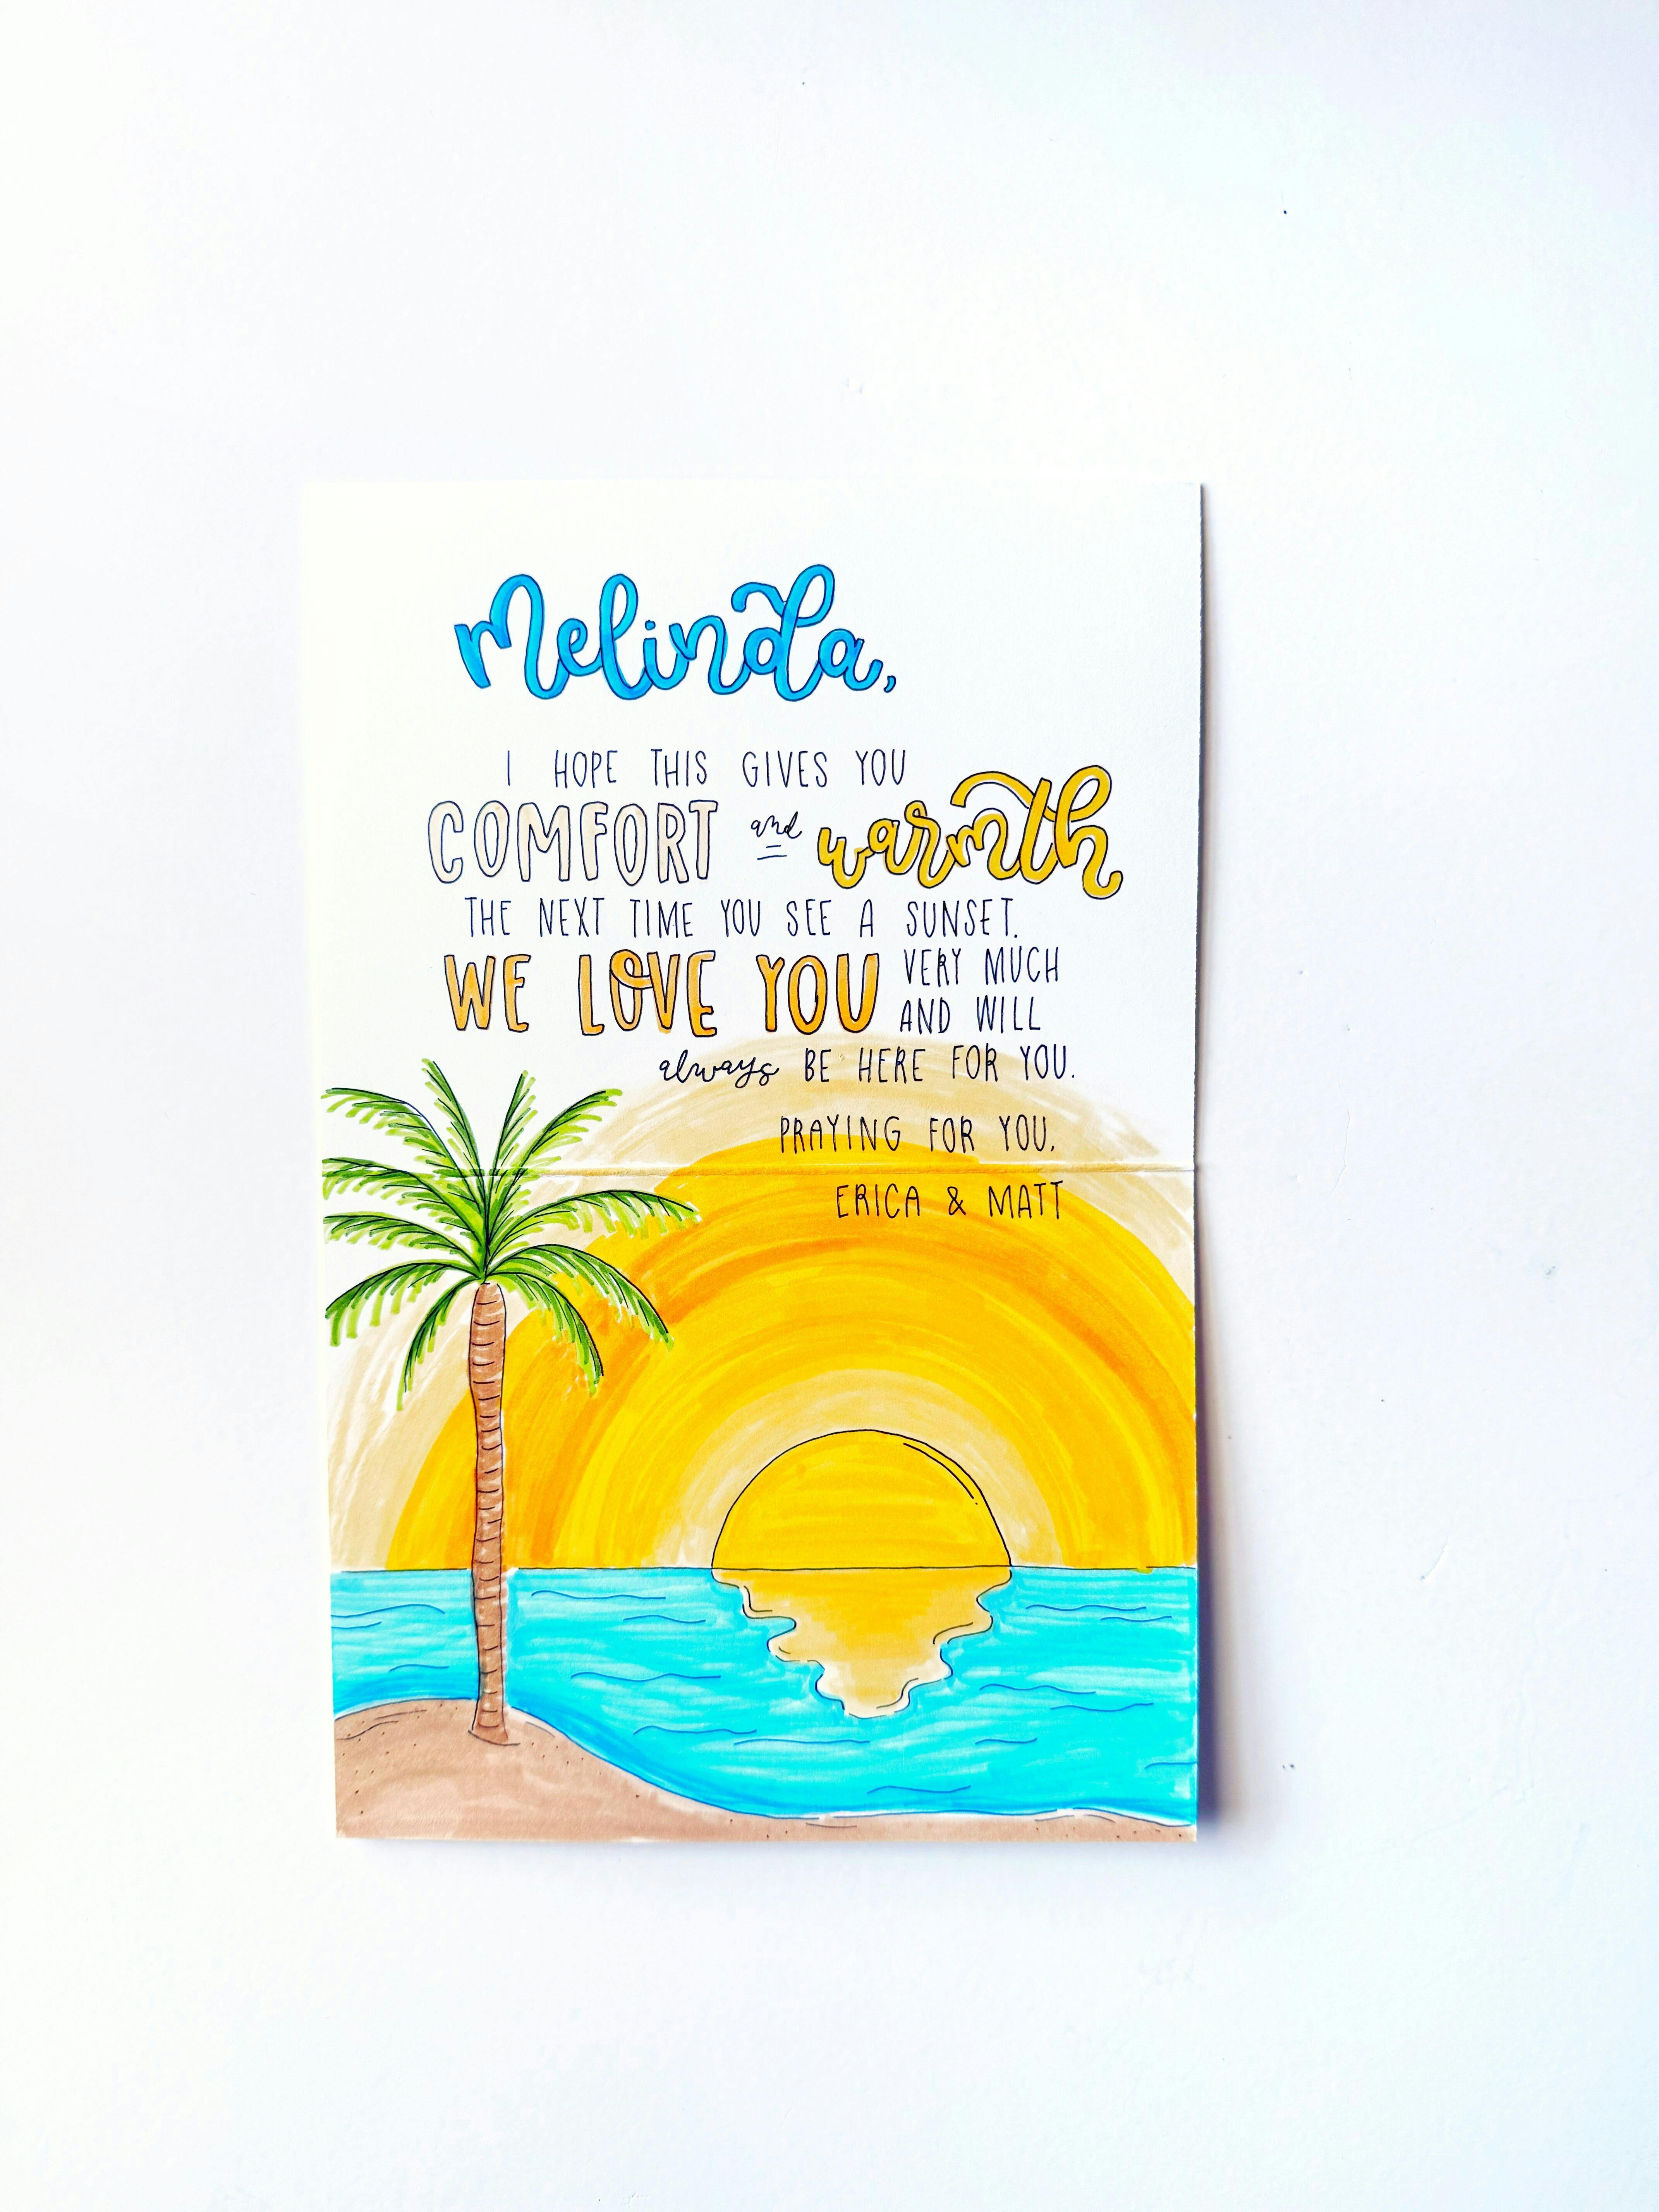 Melinda,
I HOPE THIS GIVES YOU
COMFORT and warmth
THE NEXT TIME YOU SEE A SUNSET.
WE LOVE YOU VERY MUCH
AND WILL
always BE HERE FOR YOU.
PRAYING FOR YOU,
ERICA & MATT